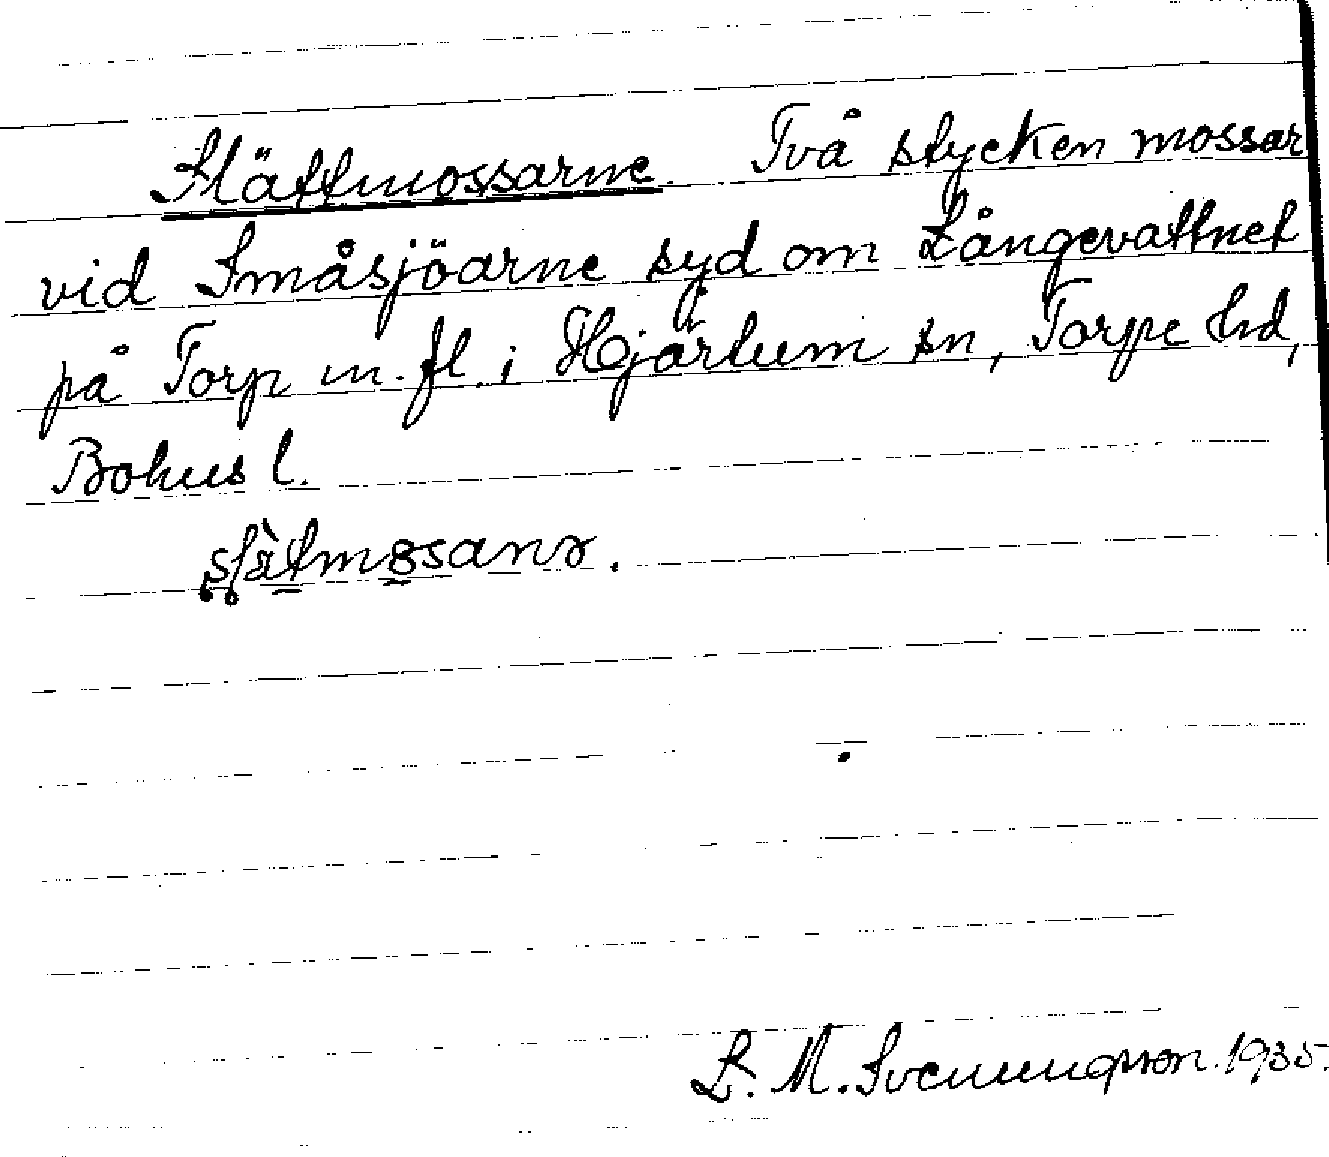 Slättmossarne. Två stycken mossar
vid Småsjöarne syd om Långevattnet
på Torp m. fl. i Hjärtum sn, Torpe hd,
Bohus l.
L. M. Svenungsson. 1935.